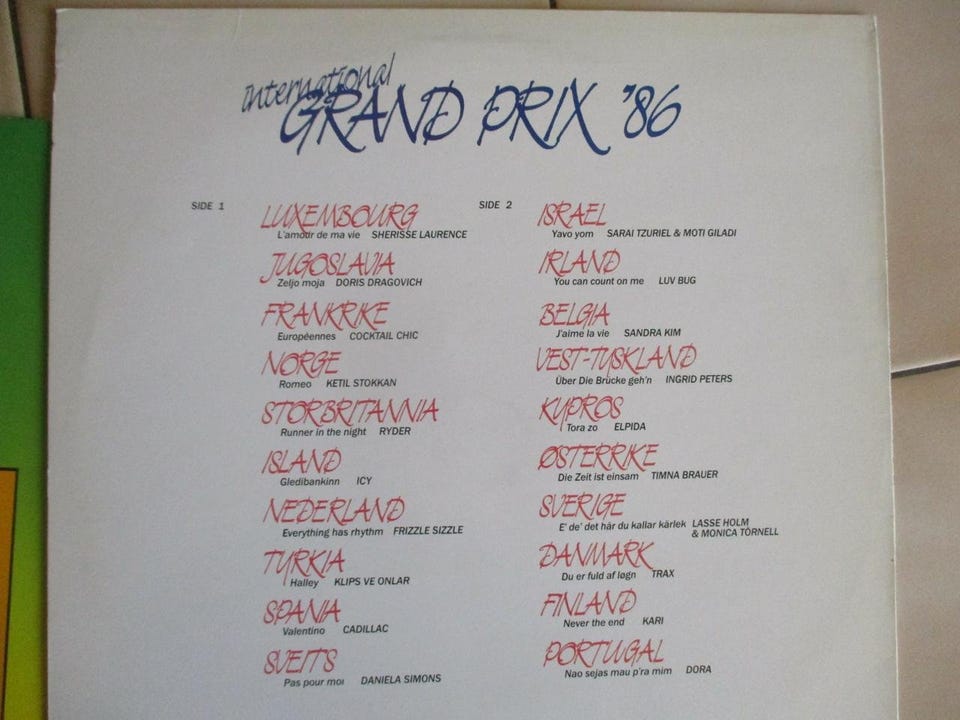 international
GRAND PRIX '86
SIDE 1
LUXEMBOURG
L'amour de ma vie SHERISSE LAURENCE
JUGOSLAVIA
Zeljo moja DORIS DRAGOVICH
FRANKRIKE
Européennes COCKTAIL CHIC
NORGE
Romeo KETIL STOKKAN
STORBRITANNIA
Runner in the night RYDER
ISLAND
Gledibankinn ICY
NEDERLAND
Everything has rhythm FRIZZLE SIZZLE
TYRKIA
Halley KLIPS VE ONLAR
SPANIA
Valentino CADILLAC
SVEITS
Pas pour moi DANIELA SIMONS
SIDE 2
ISRAEL
Yavo yom SARAI TZURIEL & MOTI GILADI
IRLAND
You can count on me LUV BUG
BELGIA
J'aime la vie SANDRA KIM
VEST-TYSKLAND
Über Die Brücke geh'n INGRID PETERS
KYPROS
Tora zo ELPIDA
ØSTERRIKE
Die Zeit ist einsam TIMNA BRAUER
SVERIGE
E' de' det här du kallar kärlek LASSE HOLM
& MONICA TÖRNELL
DANMARK
Du er fuld af løgn TRAX
FINLAND
Never the end KARI
PORTUGAL
Nao sejas mau p'ra mim DORA